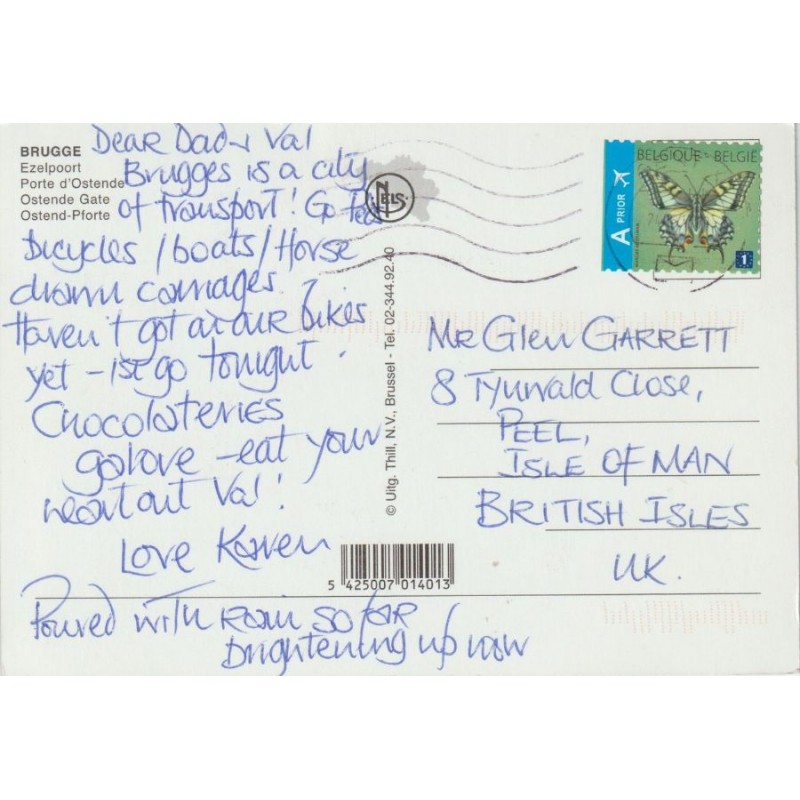 BRUGGE
Ezelpoort
Porte d'Ostende
Ostende Gate
Ostend-Pforte
Dear Dad & Val
Brugges is a city
of transport! Go
bicycles / boats / Horse
drawn carriages.
Haven't got on our bikes
yet - 1st go tonight.
Chocolateries
galore - eat your
heart out Val!
Love Karen
Poured with rain so far
brightening up now
NELS
© Uitg. Thill, N.V., Brussel - Tel. 02-344.92.40
5 425007 014013
A PRIOR
BELGIQUE - BELGIË
1
Mr Glen GARRETT
8 Tynwald Close,
PEEL,
ISLE OF MAN
BRITISH ISLES
UK.